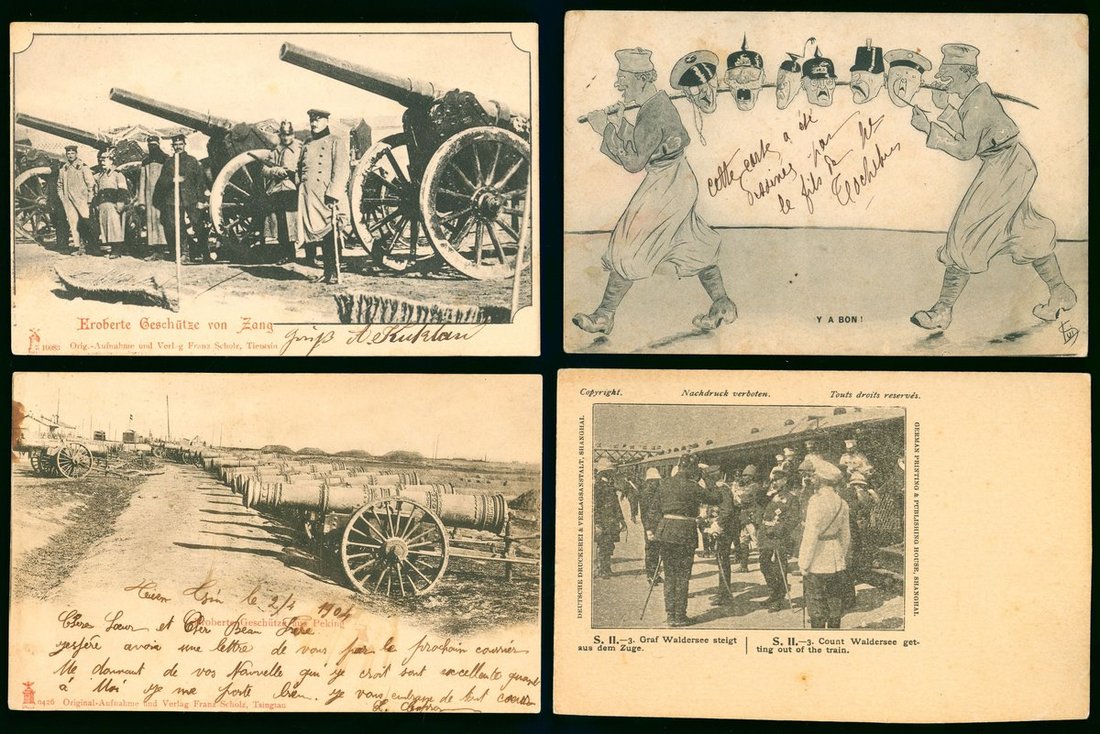 Eroberte Geschütze von Zang
16083 Orig.-Aufnahme und Verlag Franz Scholz, Tientsin
cette carte a été
dessinée par
le fils de
Y A BON!
Tien Tsin le 2/4 1904
Eroberte Geschütze aus Peking
Chère Sœur et Cher Beau Frère
jespére avoir une lettre de vous par le prochain courrier
Me donnant de vos Nouvelle qui je croit sont excellente quant
à Moi je me porte bien. je vous embrasse de tout coeur
0426 Original-Aufnahme und Verlag Franz Scholz, Tsingtau
Copyright. Nachdruck verboten. Touts droits reservés.
DEUTSCHE DRUCKEREI & VERLAGSANSTALT, SHANGHAI.
GERMAN PRINTING & PUBLISHING HOUSE, SHANGHAI.
S. II.—3. Graf Waldersee steigt
aus dem Zuge.
S. II.—3. Count Waldersee get-
ting out of the train.